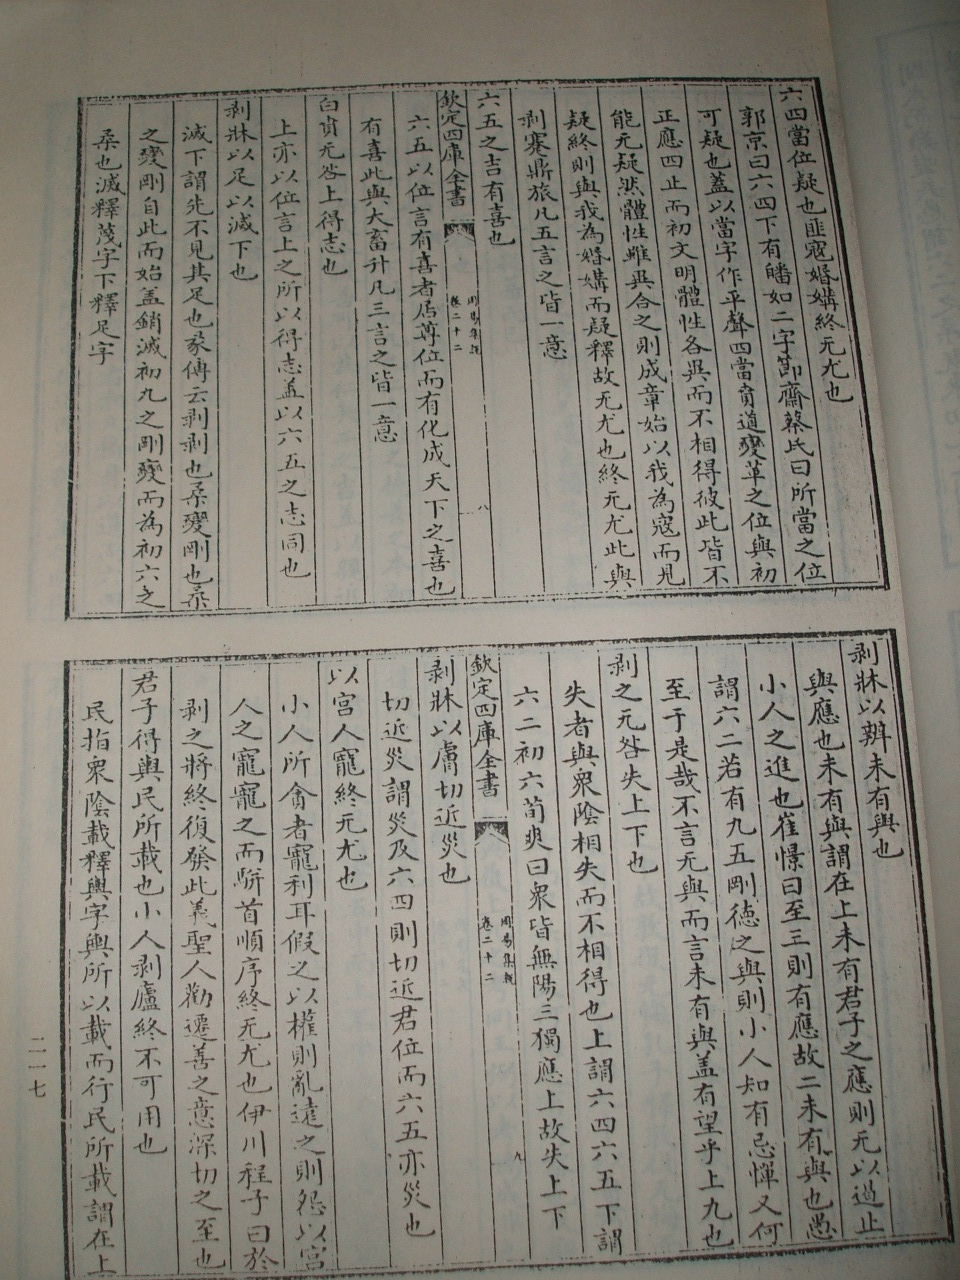 六四當位疑也匪寇婚媾終无尤也
郭京曰六四下有皤如二字節齋蔡氏曰所當之位
可疑也蓋以當字作平聲四當賁道變革之位與初
正應四止而初文明體性各異而不相得彼此皆不
能无疑然體性雖異合之則成章始以我為寇而見
疑終則與我為婚媾而疑釋故无尤也終无尤此與
剥蹇鼎旅凡五言之皆一意
六五之吉有喜也
欽定四庫全書
周易集說
卷二十二
八
六五以位言有喜者居尊位而有化成天下之喜也
有喜此與大畜升凡三言之皆一意
白賁无咎上得志也
上亦以位言上之所以得志蓋以六五之志同也
剥牀以足以滅下也
滅下謂先不見其足也彖傳云剥剥也柔變剛也柔
之變剛自此而始盖銷滅初九之剛變而為初六之
柔也滅釋蔑字下釋足字
剥牀以辨未有與也
與應也未有與謂在上未有君子之應則无以遏止
小人之進也崔憬曰至三則有應故二未有與也愚
謂六二若有九五剛徳之與則小人知有忌憚又何
至于是哉不言无與而言未有與盖有望乎上九也
剥之无咎失上下也
失者與衆陰相失而不相得也上謂六四六五下謂
六二初六荀爽曰衆皆無陽三獨應上故失上下
欽定四庫全書
周易集說
卷二十二
九
剥牀以膚切近災也
切近災謂災及六四則切近君位而六五亦災也
以宮人寵終无尤也
小人所貪者寵利耳假之以權則亂遠之則怨以宮
人之寵寵之而駢首順序終无尤也伊川程子曰於
剥之將終復發此義聖人勸遷善之意深切之至也
君子得輿民所載也小人剥廬終不可用也
民指衆陰載釋輿字輿所以載而行民所載謂在上
二一七